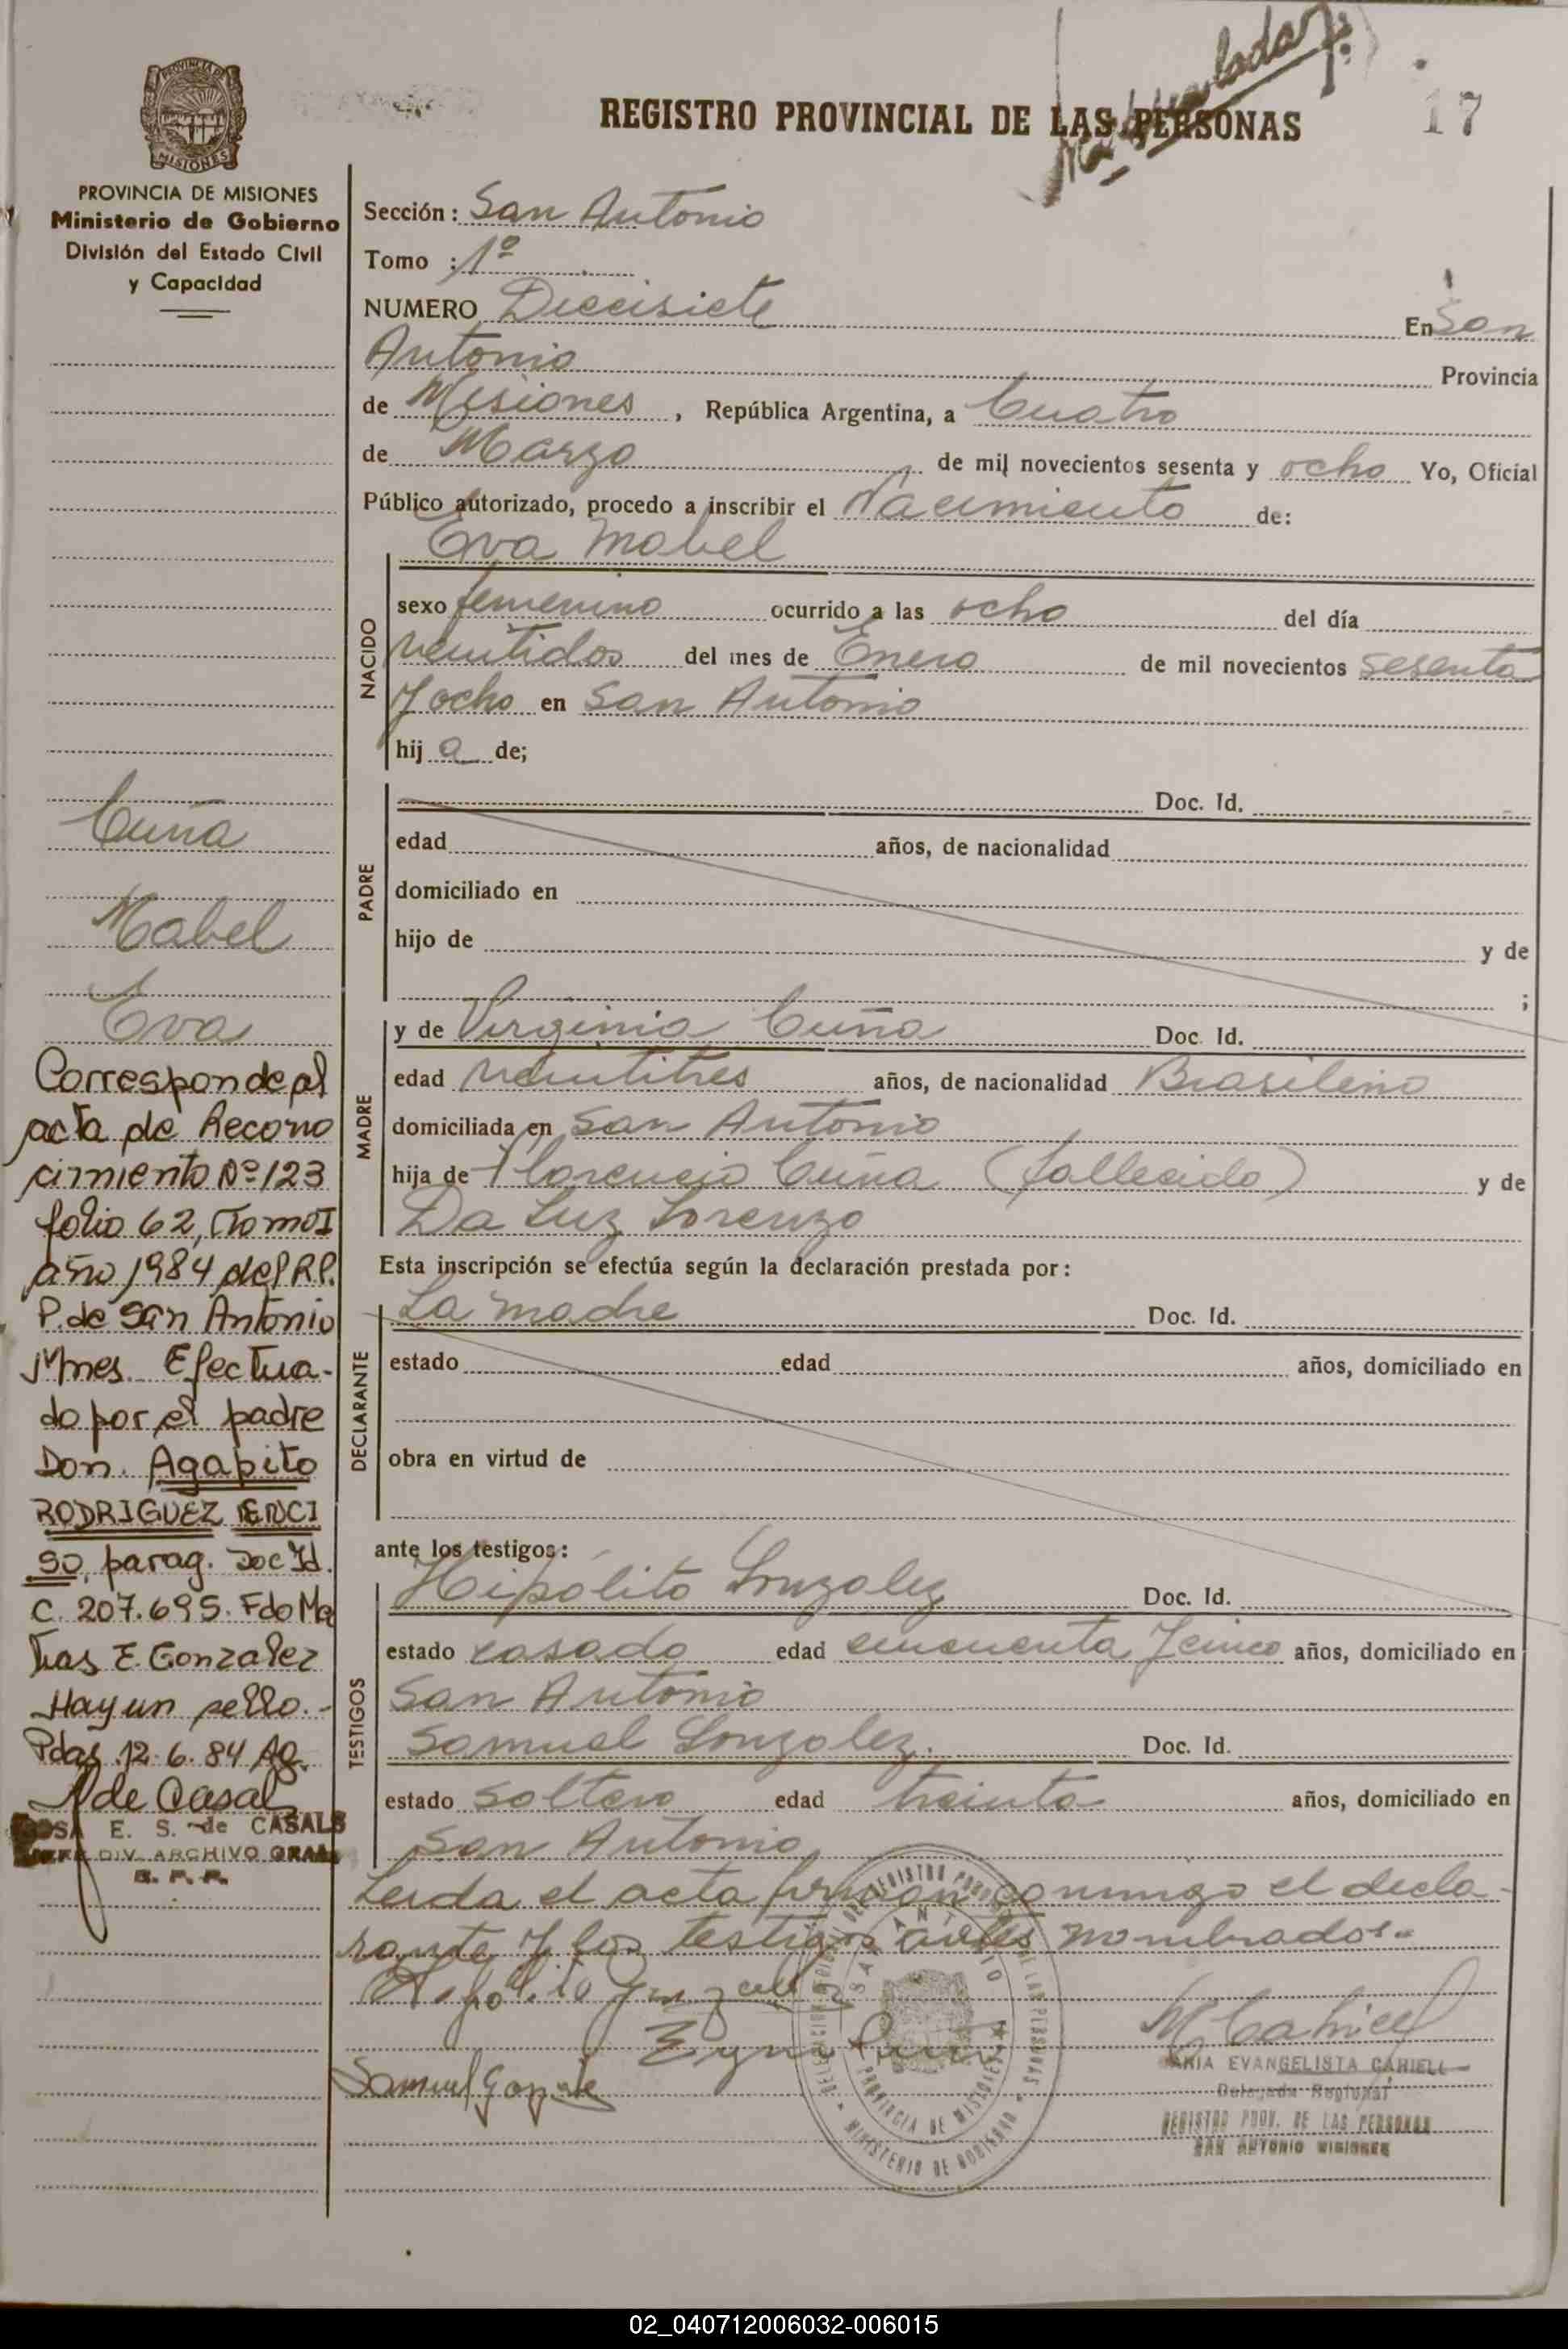 REGISTRO PROVINCIAL DE LAS PERSONAS
17
PROVINCIA DE MISIONES
Ministerio de Gobierno
División del Estado Civil
y Capacidad
Sección: San Antonio
Tomo : 1º
NUMERO Diecisiete En San
Antonio Provincia
de Misiones, República Argentina, a Cuatro
de Marzo de mil novecientos sesenta y ocho Yo, Oficial
Público autorizado, procedo a inscribir el Nacimiento de:
Eva Mabel
NACIDO
sexo femenino ocurrido a las ocho del día
veintidos del mes de Enero de mil novecientos sesenta
y ocho en San Antonio
hij a de;
PADRE
Doc. Id.
edad años, de nacionalidad
domiciliado en
hijo de y de
;
MADRE
y de Virginia Cuña Doc. Id.
edad veintitres años, de nacionalidad Brasileña
domiciliada en San Antonio
hija de Florencio Cuña (fallecido) y de
Da Luz Lorenzo
Esta inscripción se efectúa según la declaración prestada por:
DECLARANTE
La madre Doc. Id.
estado edad años, domiciliado en
obra en virtud de
ante los testigos:
TESTIGOS
Hipólito Gonzalez Doc. Id.
estado casado edad cincuenta y cinco años, domiciliado en
San Antonio
Samuel Gonzalez. Doc. Id.
estado soltero edad treinta años, domiciliado en
San Antonio
Leida el acta firman conmigo el decla-
rante y los testigos antes nombrados.-
Samuel Gonzale
EVANGELISTA CAHIELL
Delegada Regional
REGISTRO PROV. DE LAS PERSONAS
SAN ANTONIO MISIONES
SAN ANTONIO
PROVINCIA DE MISIONES
MINISTERIO DE GOBIERNO
Cuña
Mabel
Eva
Corresponde al
acta de Recono
cimiento Nº 123
folio 62, Tomo I
año 1984 del R.P.
P. de San Antonio
Mnes. Efectua-
do por el padre
Don. Agapito
RODRIGUEZ ENCI
SO, parag. Doc Id.
C. 207.695. Fdo Ma
tias E. Gonzalez
Hay un sello.-
Pdas. 12-6-84 AG.
de Casals
E. S. de CASALS
DIV. ARCHIVO GRAL
R. P. P.
02_040712006032-006015